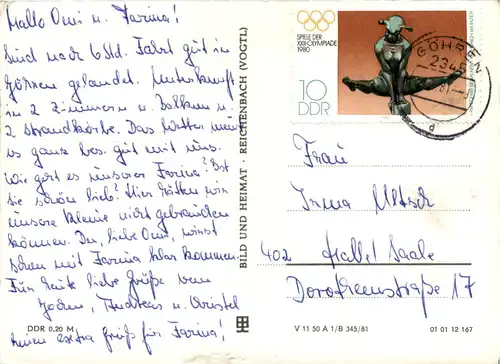 Hallo Omi u. Farina!
Sind nach 6 Std. Fahrt gut in
Göhren gelandet. Unterkunft
in 2 Zimmern u. Balkon u.
2 Strandkörbe. Das Wetter meint
es ganz bes. gut mit uns.
Wie geht es unserer Farina? Ist
sie schön lieb? Hier hätten wir
unsere Kleine nicht gebrauchen
können. Du, liebe Omi, wirst
schon mit Farina klar kommen.
Für heute liebe Grüße von
Jochen, Andreas u. Christel
Einen extra Gruß für Farina!
DDR 0,20 M
BILD UND HEIMAT · REICHENBACH (VOGTL)
SPIELE DER
XXII. OLYMPIADE
1980
10
DDR
GÖHREN
2345
Frau
Irma Ultsch
402 Halle/Saale
Dorotheenstraße 17
V 11 50 A 1/B 345/81
01 01 12 167